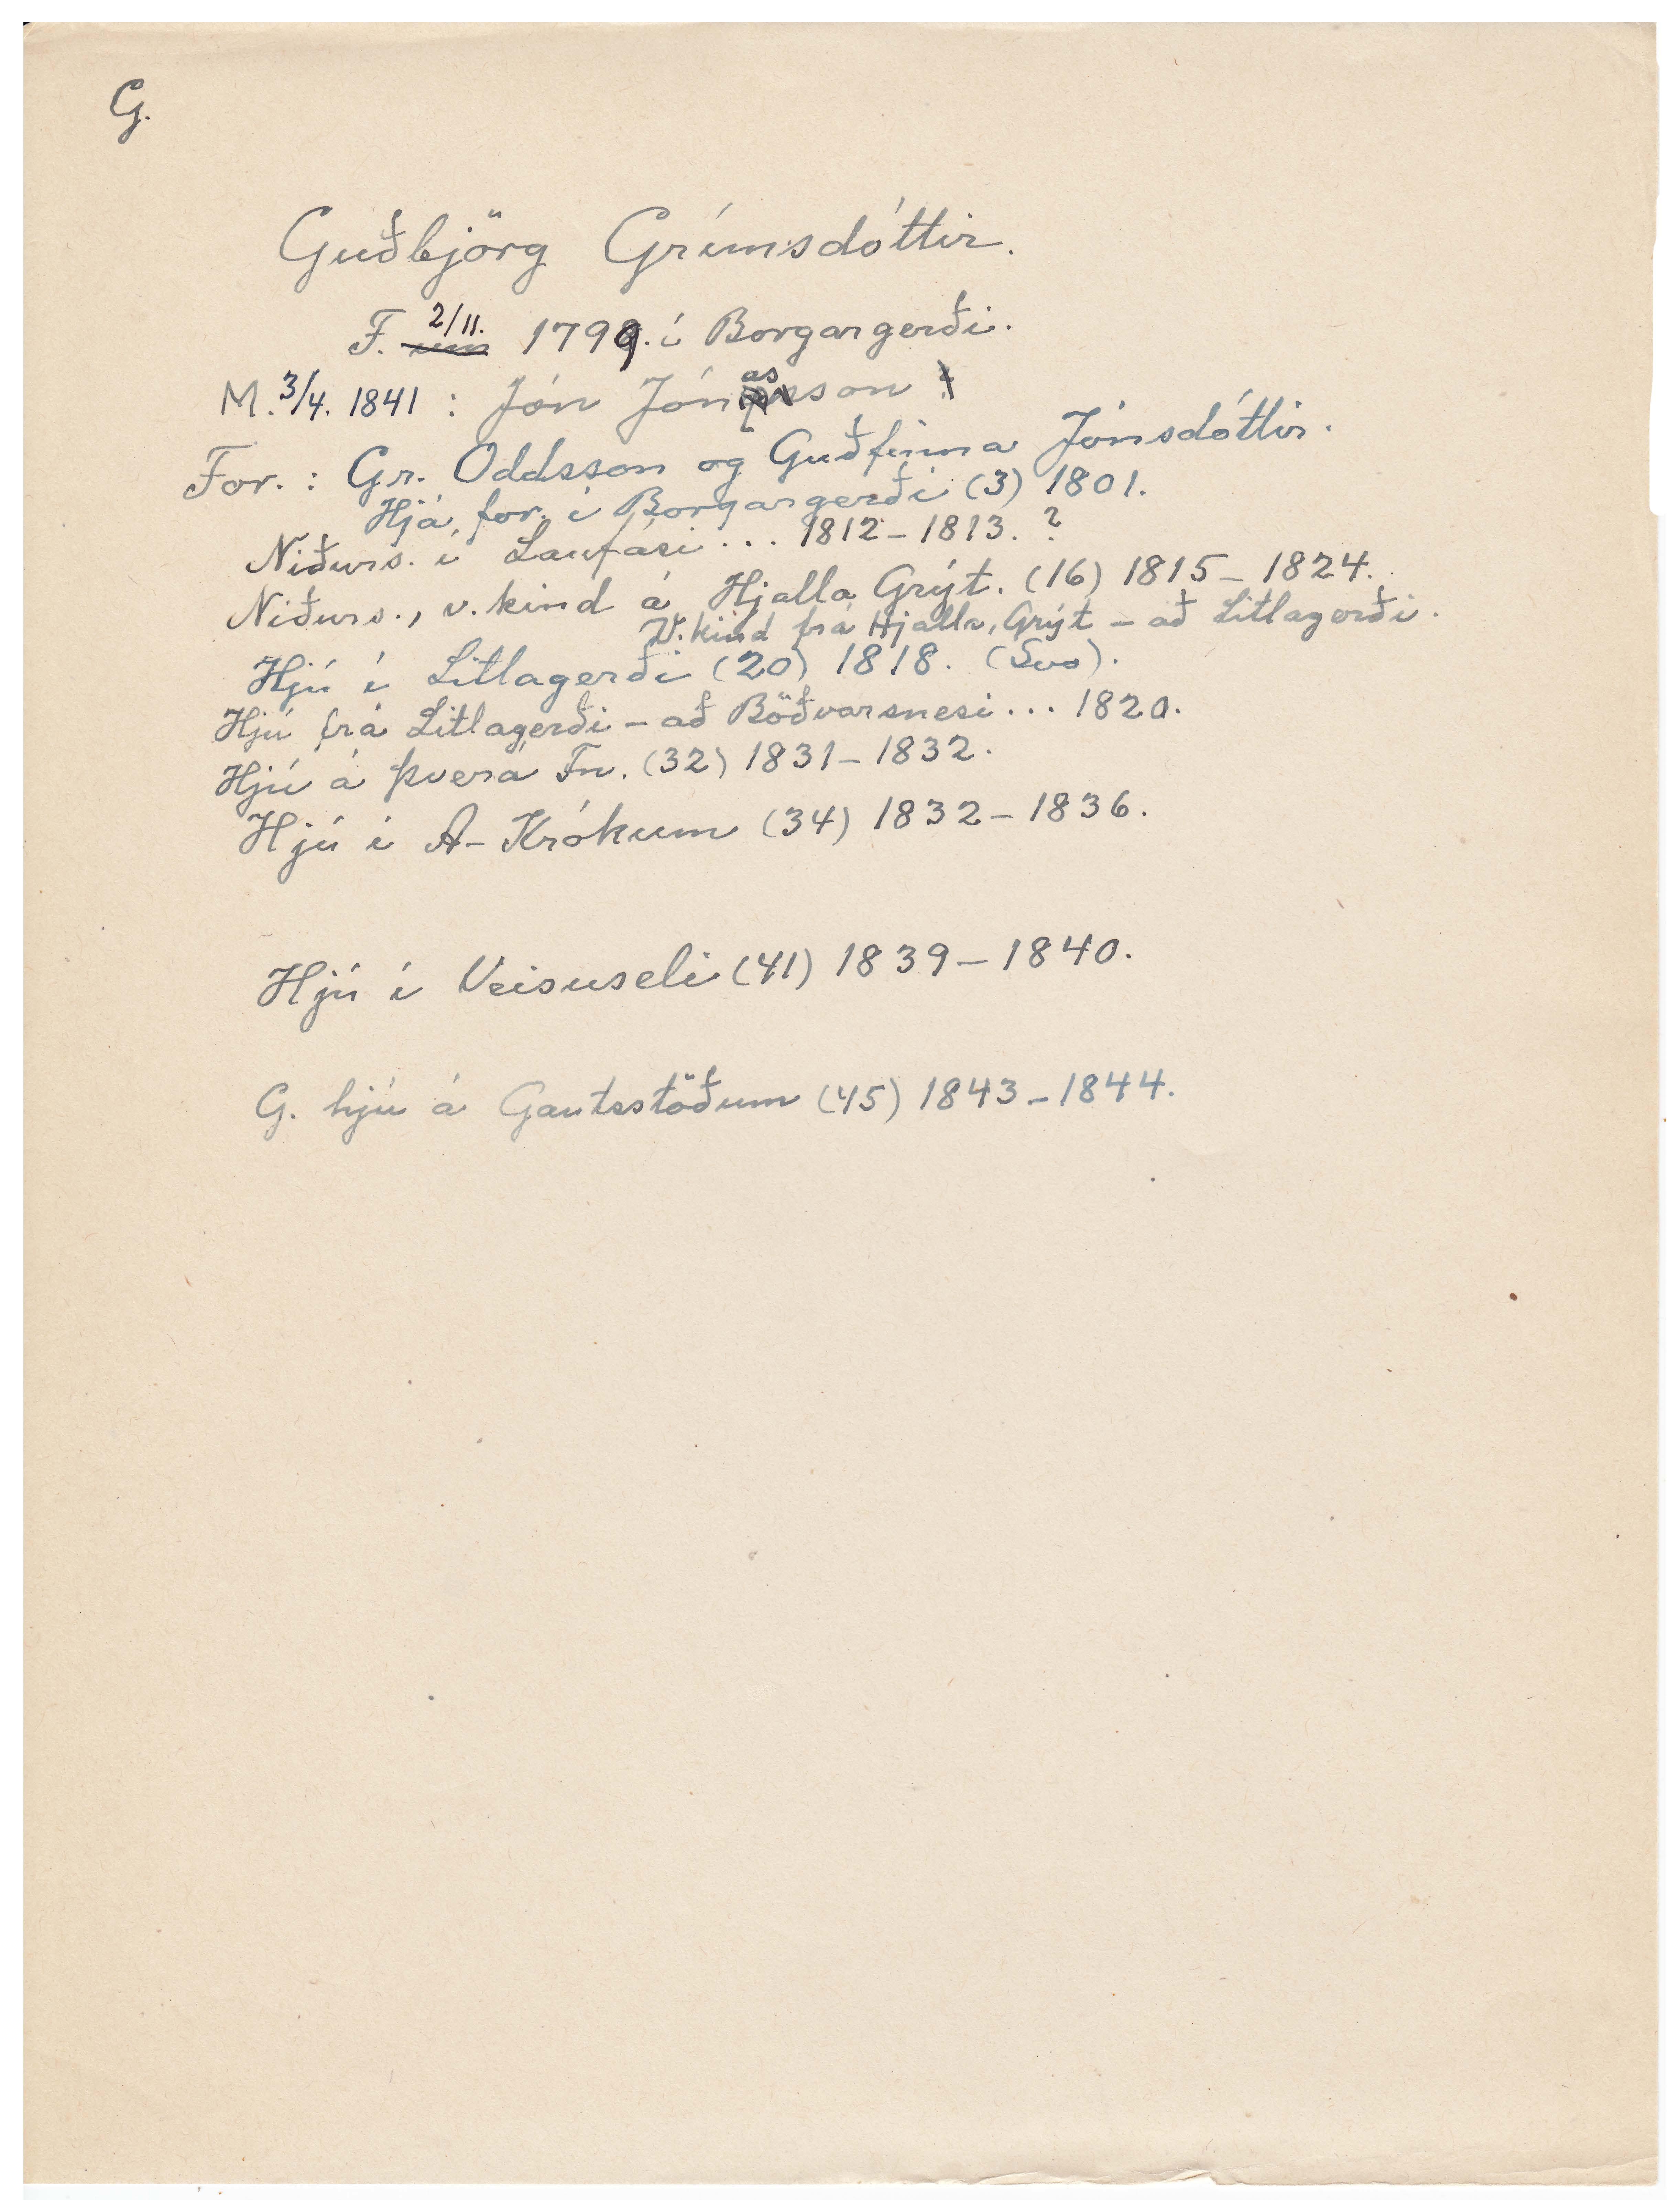 G.
Guðbjörg Grímsdóttir.
F. 2/11. 1799. í Borgargerði.
M. 3/4. 1841 : Jón Jónasson
For. : Gr. Oddsson og Guðfinna Jónsdóttir.
Hjá for. í Borgargerði (3) 1801.
Niðurs. í Laufási ... 1812 - 1813. ?
Niðurs., v. kind á Hjalla Grýt. (16) 1815 - 1824.
V. kind frá Hjalla, Grýt - að Litlagerði.
Hjú í Litlagerði (20) 1818. (Svo).
Hjú frá Litlagerði - að Böðvarsnesi ... 1820.
Hjú á Þverá Fn. (32) 1831 - 1832.
Hjú í A- Krókum (34) 1832 - 1836.
Hjú í Veisuseli (41) 1839 - 1840.
G. hjú á Gautsstöðum (45) 1843 - 1844.